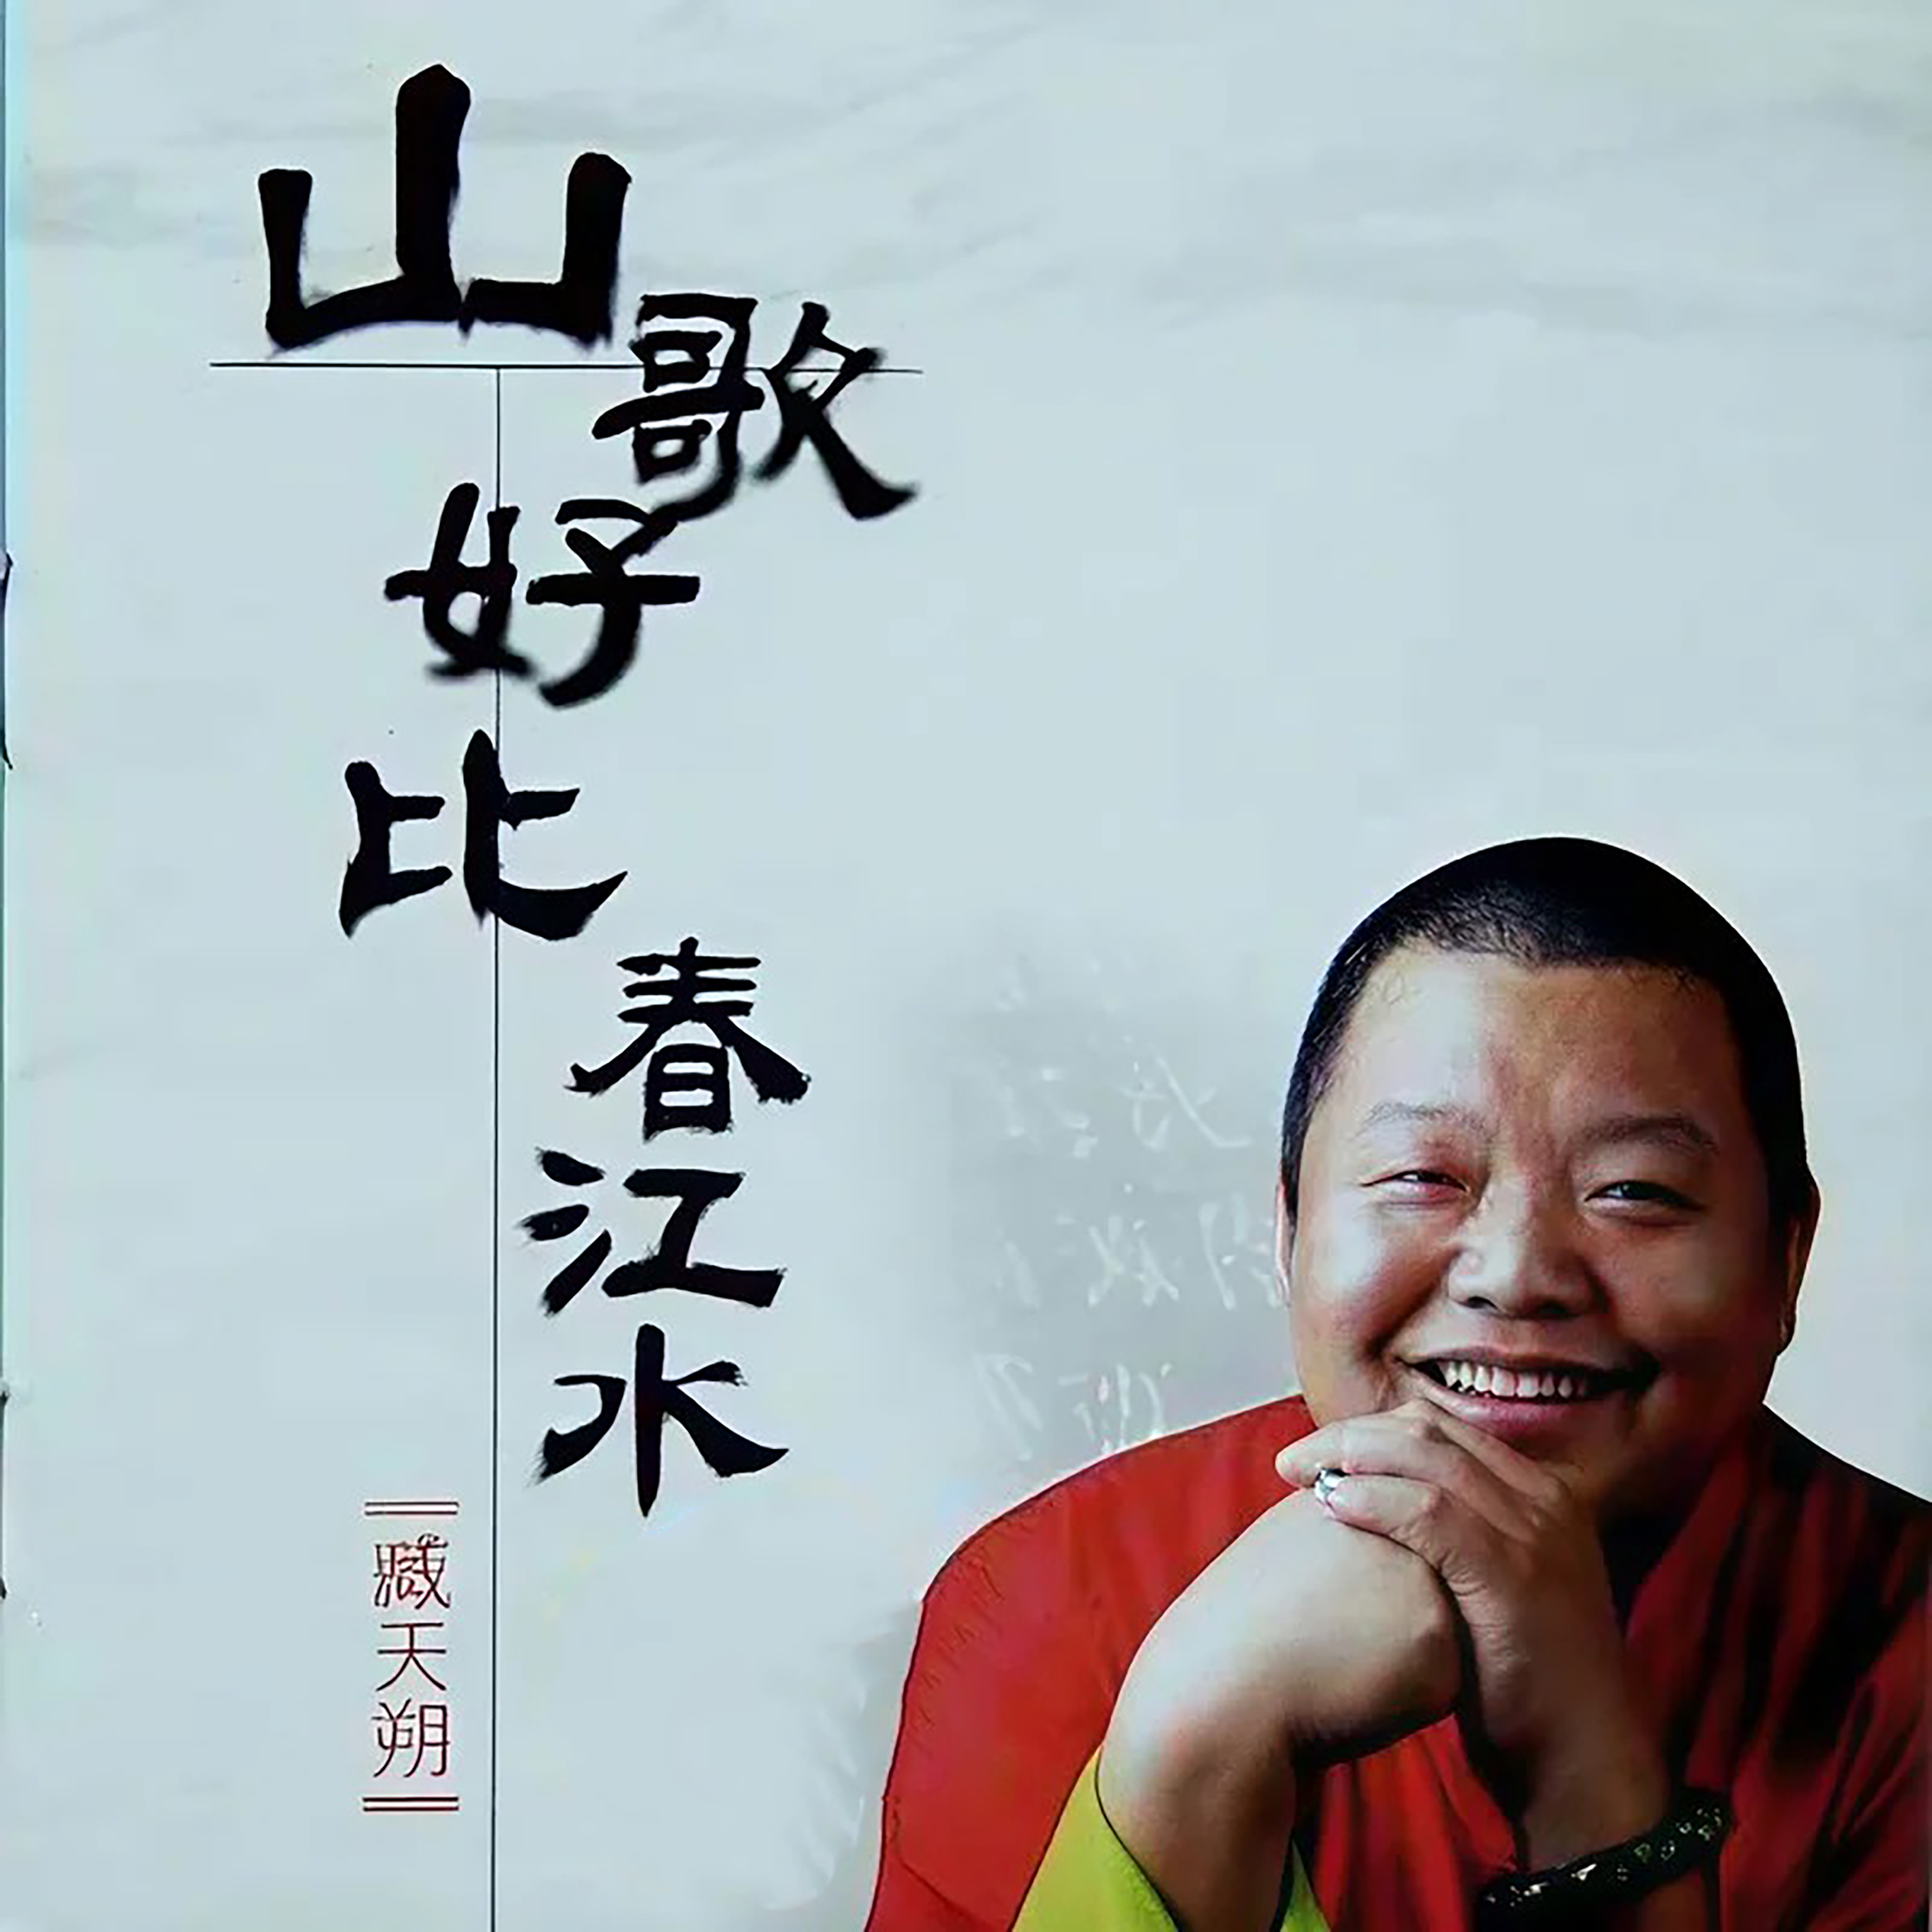 山歌好比春江水
臧天朔